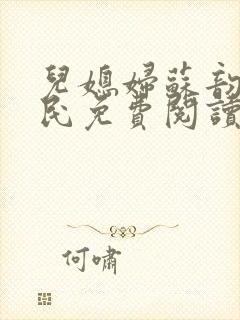 兒媳婦蘇韵
民免費閱讀
何嘯